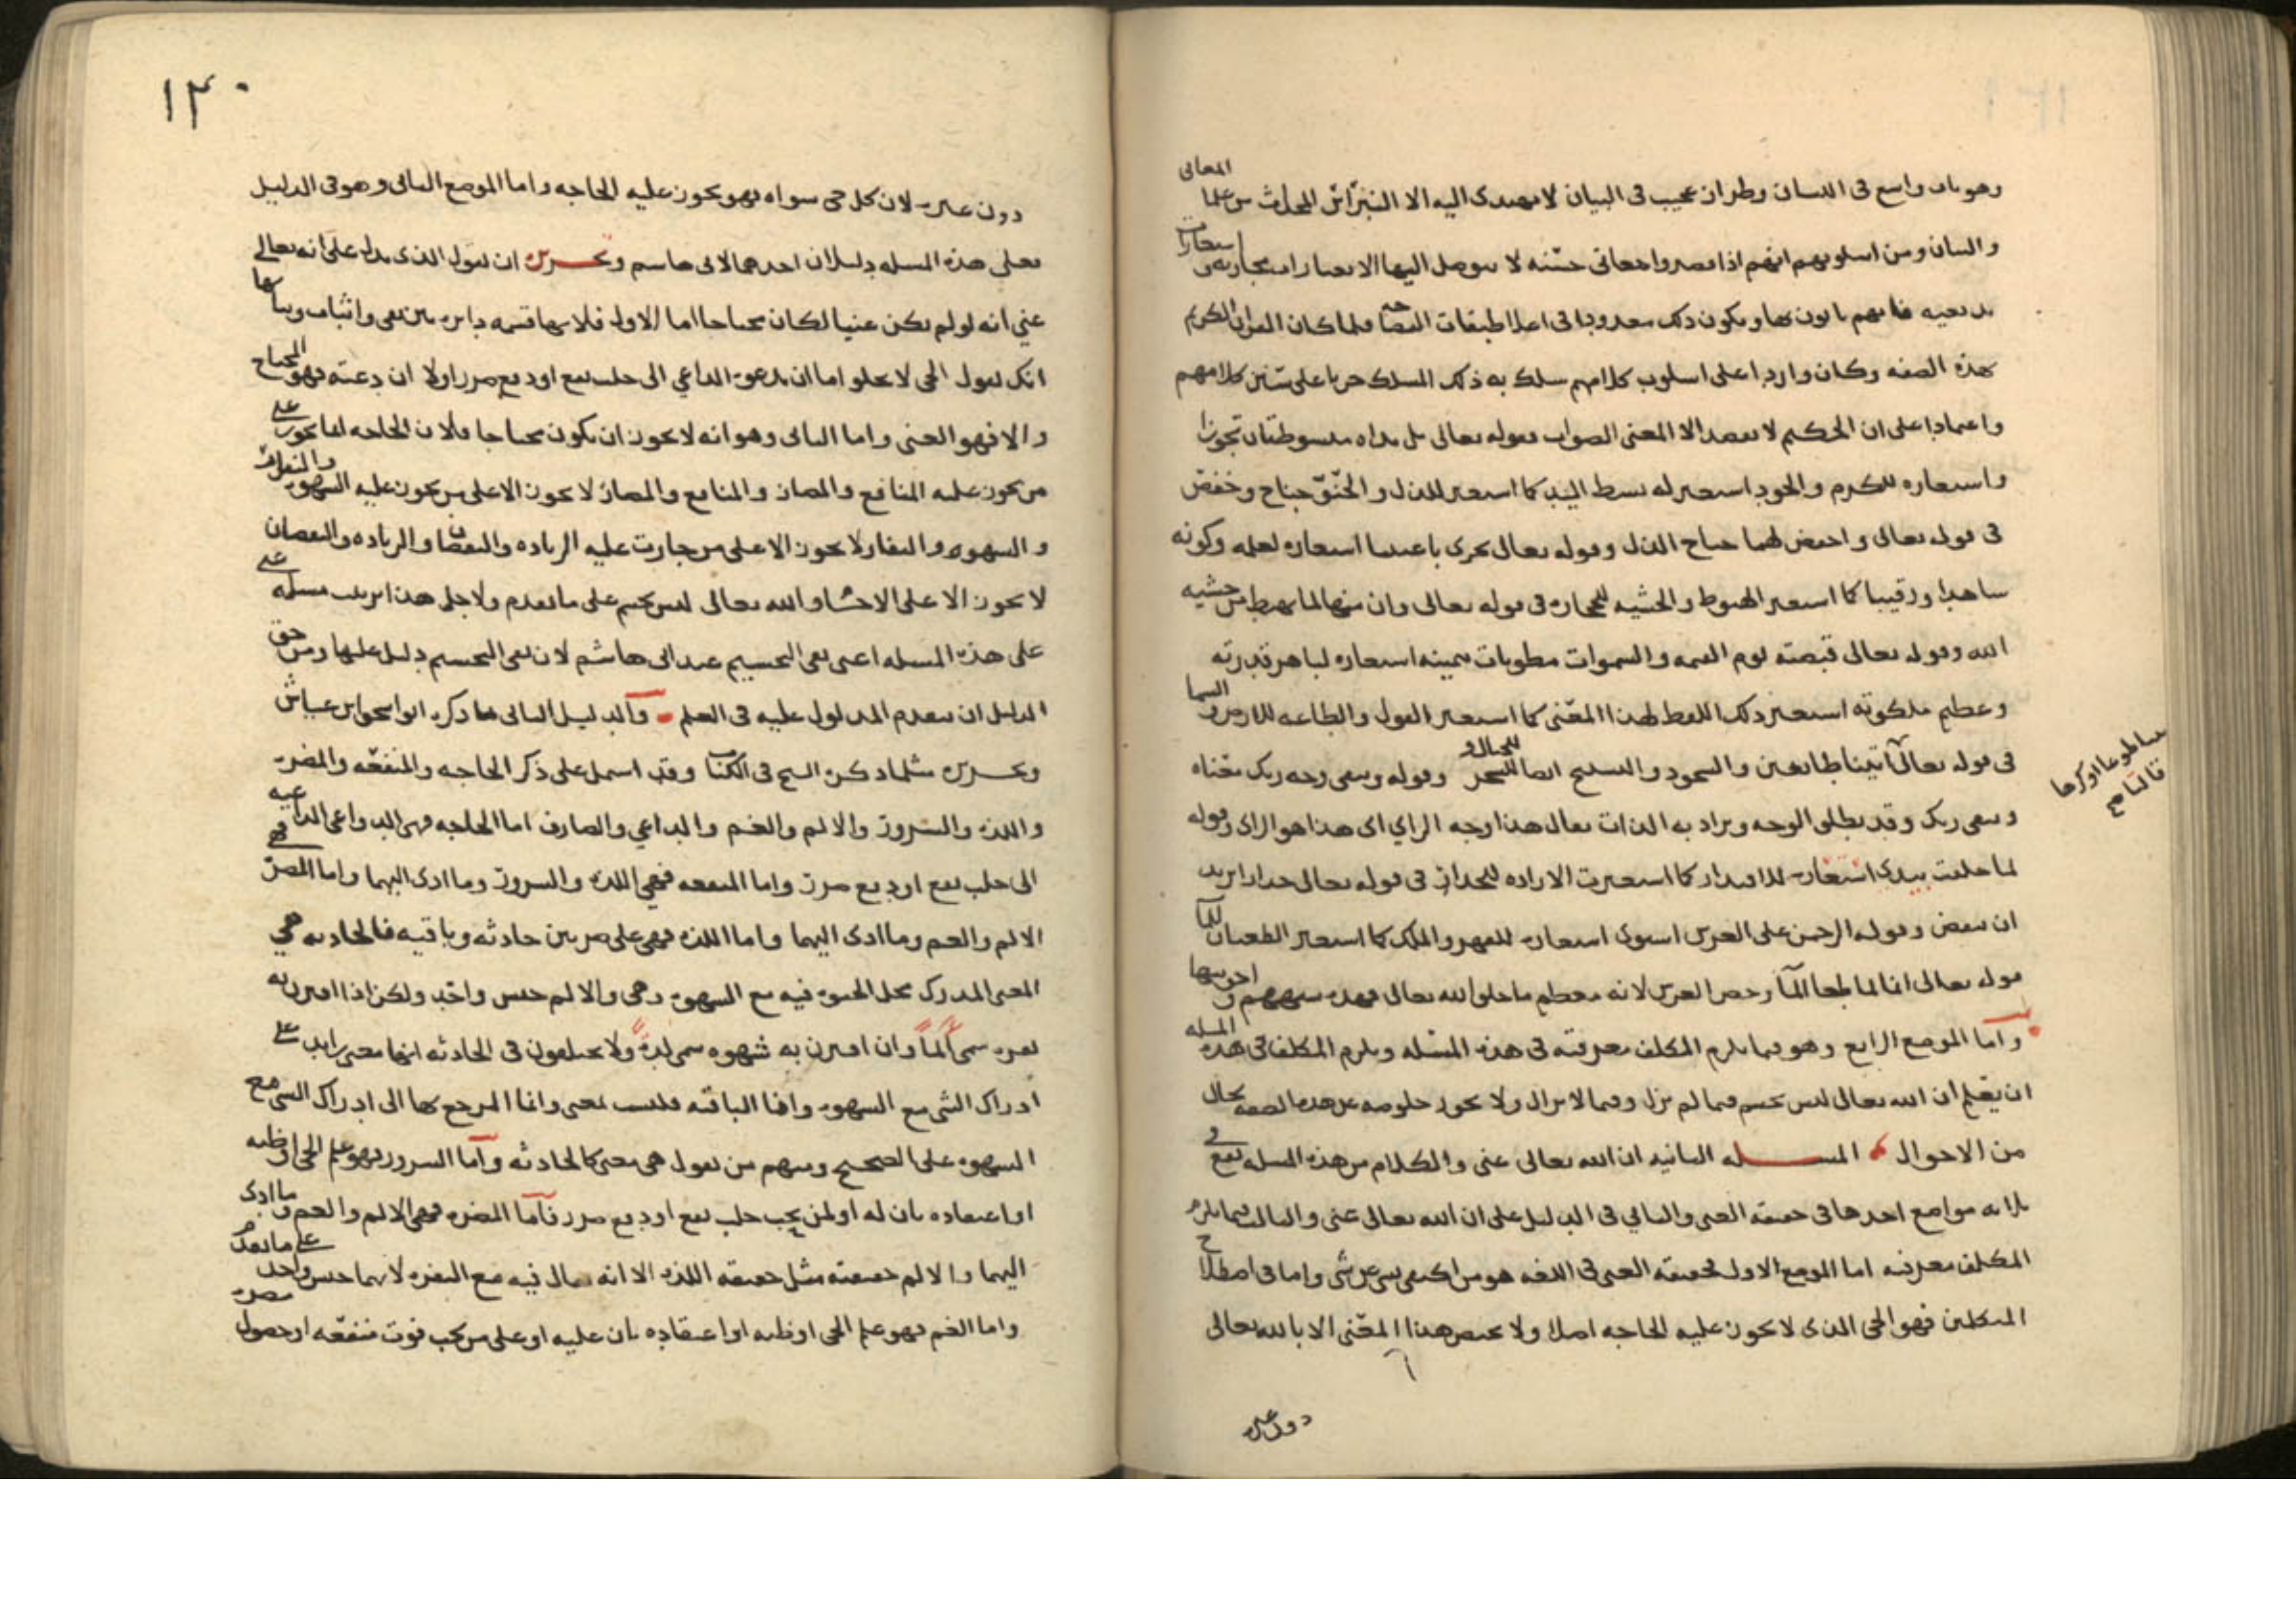 وهو باب واسع فى اللسان وطراز عجيب فى البيان لا يهتدى اليه الا من علما المعانى
والبيان ومن اسلوبهم انهم اذا قصدوا معانى حسنه لا يتوصل اليها الا بعبارات مجازيه واستعارات
بديعيه فانهم ياتون بها ويكون ذلك معدودا فى اعلا طبقات الفصاحه فلما كان القران الكريم
بهذه الصفه وكان واردا على اسلوب كلامهم سلك به ذلك المسلك جريا على سنن كلامهم
واعتمادا على ان الحكيم لا يقصد الا المعنى الصواب فقوله تعالى بل يداه مبسوطتان تجوزا
واستعاره للكرم والجود استعير له بسط اليد كما استعير للذل والحنو جناح وخفض
فى قوله تعالى واخفض لهما جناح الذل وقوله تعالى تجرى باعيننا استعاره لعلمه وكونه
شاهدا ورقيبا كما استعير الهبوط والخشيه للحجاره فى قوله تعالى وان منها لما يهبط من خشيه
الله وقوله تعالى قبضته يوم القيمه والسموات مطويات بيمينه استعاره لباهر قدرته
وعظيم ملكوته استعير ذلك اللفظ لهذا المعنى كما استعير القول والطاعه للارض والسما
فى قوله تعالى اتينا طايعين والسجود والتسبيح ايضا للجبال والشجر وقوله ويبقى وجه ربك معناه
ويبقى ربك وقد يطلق الوجه ويراد به الذات يقال هذا وجه الراى اى هذا هو الراى وقوله
لما خلقت بيدى استعاره للاقتدار كما استعيرت الاراده للجدار فى قوله تعالى جدارا يريد
ان ينقض وقوله الرحمن على العرش استوى استعاره للقهر والملك كما استعير الطغيان للما
فى قوله تعالى انا لما طغا الما وخص العرش لانه معظم ما خلق الله تعالى فهذه شبههم واجوبتها
واما الموضع الرابع وهو فيما يلزم المكلف معرفته فى هذه المسئله ويلزم المكلف فى هذه المسله
ان يعلم ان الله تعالى ليس بجسم فيما لم يزل وفيما لا يزال ولا يجوز خلوصه عن هذه الصفه بحال
من الاحوال المسله الثانيه ان الله تعالى غنى والكلام من هذه المسله يقع فى
ثلاثه مواضع احدها فى حقيقه الغنى والثانى فى الدليل على ان الله تعالى غنى والثالث فيما يلزم
المكلف معرفته اما الموضع الاول فحقيقه الغنى فى اللغه هو من اكتفى بشى عن شى واما فى اصطلاح
المتكلمين فهو الحى الذى لا تجوز عليه الحاجه اصلا ولا يختص هذا المعنى الا بالله تعالى
دون غيره
طوعا او كرها
قالتا
١٣٠
دون غيره لان كل حى سواه فهو تجوز عليه الحاجه واما الموضع الثانى وهو فى الدليل
فعلى هذه المسله دليلان احدهما لابى هاشم وتحريره ان نقول الذى يدل على انه تعالى
غنى انه لو لم يكن غنيا لكان محتاجا اما الاول فلانها قسمه دايره بين نفى واثبات وبيانها
انك تقول الحى لا يخلو اما ان يدعوه الداعى الى جلب نفع او دفع ضرر اولا ان دعته فهو المحتاج
والا فهو الغنى واما الثانى وهو انه لا يجوز ان يكون محتاجا فلان الحاجه انما تجوز على
من تجوز عليه المنافع والمضار والمنافع والمضار لا تجوز الا على من تجوز عليه الشهوه والنفار
والشهوه والنفار لا تجوز الا على من جازت عليه الزياده والنقصان والزياده والنقصان
لا تجوز الا على الاجسام والله تعالى ليس بجسم على ما تقدم ولاجل هذا ترتب مسله
على هذه المسله اعنى نفى التجسيم عند ابى هاشم لان نفى التجسيم دليل عليها ومن حق
الدليل ان يتقدم المدلول عليه فى العلم والدليل الثانى ما ذكره ابو اسحق ابن عياش
وتحريره مثلما ذكره الشيخ فى الكتاب وقد اشتمل على ذكر الحاجه والمنفعه والمضره
واللذه والسرور والالم والغم والداعى والصارف اما الحاجه فهى الدواعى الداعيه
الى جلب نفع او دفع ضرر واما المنفعه فهى اللذه والسرور وما ادى اليهما واما المضره فهى
الالم والغم وما ادى اليهما واما اللذه فهى على ضربين حادثه وباقيه فالحادثه هى
المعنى المدرك بمحل الحيوه فيه مع الشهوه وهى والالم جنس واحد ولكن اذا اقترن به
نفره سمى الما وان اقترن به شهوه سمى لذه ولا يختلفون فى الحادثه انها معنى زايد على
ادراك الشى مع الشهوه واما الباقيه فليست بمعنى وانما المرجع بها الى ادراك الشى مع
الشهوه على الصحيح ومنهم من يقول هى معنى كالحادثه واما السرور فهو علم الحى او ظنه
او اعتقاده بان له او لمن يحب جلب نفع او دفع ضرر فاما المضره فهى الالم والغم وما ادى
اليهما والالم حقيقته مثل حقيقه اللذه الا انه يقال فيه مع النفره لانهما جنس واحد على ما تقدم
واما الغم فهو علم الحى او ظنه او اعتقاده بان عليه او على من يحب فوت منفعه او حصول مضره